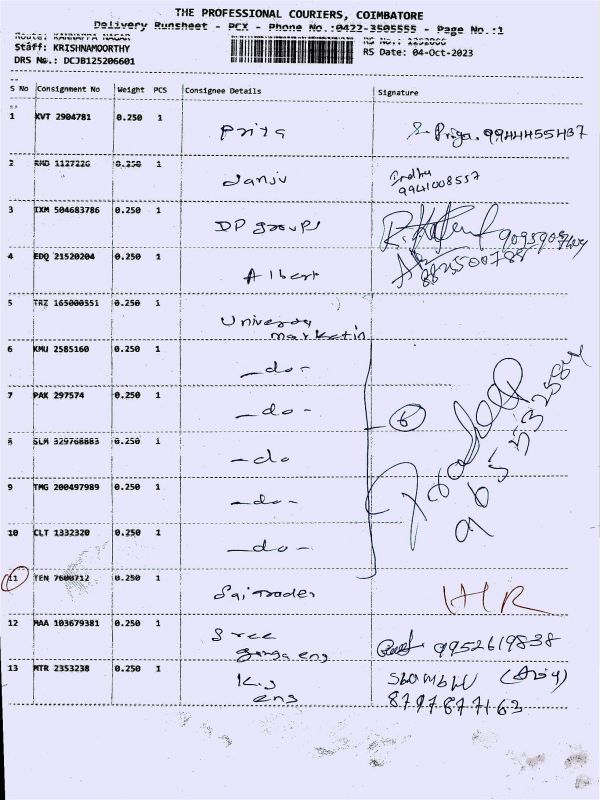 THE PROFESSIONAL COURIERS, COIMBATORE
Delivery Runsheet - PCX - Phone No.:0422-3505555 - Page No.:1
Route: KANNAPPA NAGAR
Staff: KRISHNAMOORTHY RS Date: 04-Oct-2023
DRS No.: DCJB125206601
S No Consignment No Weight PCS Consignee Details Signature
1 KVT 2904781 0.250 1 Priya Priya. 9944455437
2 RMD 1127226 0.250 1 Sanju Indhu
9941008557
3 IXM 504683786 0.250 1 DP groups
4 EDQ 21520204 0.250 1 Albert 8825500788
5 TRZ 165000351 0.250 1 Universal
marketin
6 KMU 2585160 0.250 1 -do-
7 PAK 297574 0.250 1 -do- 6
8 SLM 329768883 0.250 1 -do Pradeep
9655532584
9 TMG 200497989 0.250 1 -do-
10 CLT 1332320 0.250 1 -do-
11 TEN 7600712 0.250 1 Sai Trader HR
12 MAA 103679381 0.250 1 Sree
ganga eng 9952619838
13 MTR 2353238 0.250 1 K.J
eng Shambhu
8797877163